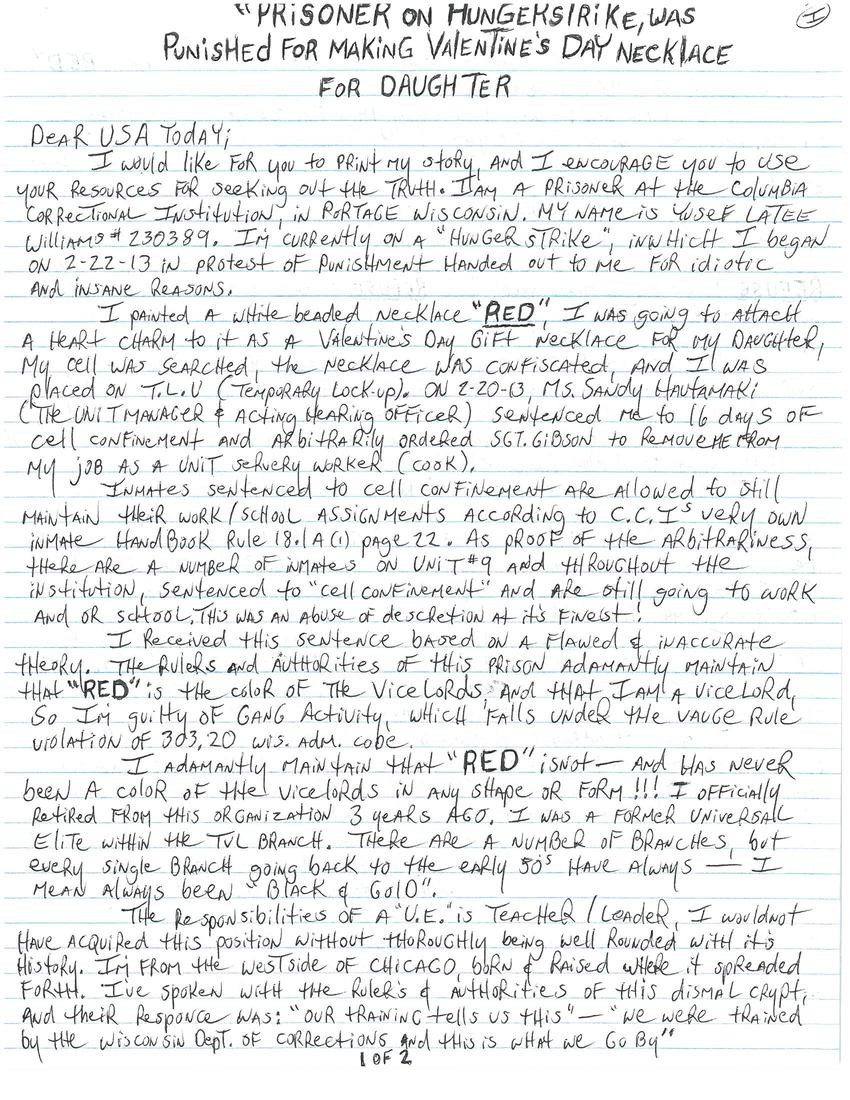 "PRISONER ON HUNGERSTRIKE, WAS
PUNISHED FOR MAKING VALENTINE'S DAY NECKLACE
FOR DAUGHTER
I
DEAR USA TODAY;
I would like FOR you to PRINT my story, AND I ENCOURAGE you to use
your RESOURCES FOR seeking out the TRUTH. I AM A PRISONER AT the COLUMBIA
CORRECTIONAL INSTITUTION, IN PORTAGE WISCONSIN. MY NAME is YUSEF LATEE
Williams # 230389. I'M CURRENTLY ON A "HUNGER STRIKE", INWHICH I began
ON 2-22-13 IN PROTEST OF PUNISHMENT HANDED OUT to ME FOR idiotic
AND INSANE REASONS.
I PAINTED A white beaded NECKLACE "RED", I WAS going to ATTACH
A HEART CHARM to it AS A VALENTINE'S DAY GIFT NECKLACE FOR MY DAUGHTER,
My cell WAS SEARCHED, the NECKLACE WAS CONFISCATED, AND I WAS
placed ON T.L.U (TEMPORARY LOCK-UP). ON 2-20-13, MS. SANDY HAUTAMAKI
(THE UNIT MANAGER & ACTING HEARING OFFICER) SENTENCED ME to 16 DAYS OF
cell CONFINEMENT AND ARBITRARILY ORDERED SGT. GIBSON to REMOVE ME FROM
MY JOB AS A UNIT SERVERY WORKER (COOK).
INMATES SENTENCED to cell CONFINEMENT ARE Allowed to still
MAINTAIN their WORK/SCHOOL ASSIGNMENTS ACCORDING to C.C.I's very OWN
INMATE HANDBOOK Rule 18.1 A (1) page 22. As PROOF OF the ARBITRARINESS,
there ARE A NUMBER OF INMATES ON UNIT #9 AND THROUGHOUT the
INSTITUTION, SENTENCED to "cell CONFINEMENT" AND ARE still going to WORK
AND OR school. THIS WAS AN ABUSE OF descRETION AT it's FINEST!
I Received this SENTENCE based ON A FLAWED & INACCURATE
theory. THE RULERS AND AUTHORITIES OF this PRISON ADAMANTLY MAINTAIN
THAT "RED" is the COLOR OF THE VICE LORDS, AND tHAT I AM A VICE LORD,
SO I'M guilty OF GANG Activity, WHICH FALLS UNDER tHE VAUGE Rule
violation OF 303.20 WIS. ADM. CODE.
I ADAMANTLY MAINTAIN THAT "RED" is NOT — AND HAS NEVER
been A COLOR OF the VICELORDS IN ANY SHAPE OR FORM !!! I OFFICIALLY
Retired FROM this ORGANIZATION 3 years AGO. I WAS A FORMER UNIVERSALL
ELITE WITHIN the TVL BRANCH. THERE ARE A NUMBER OF BRANCHES, but
every single BRANCH going bACK to tHE EARLY 50s HAVE ALWAYS — I
MEAN Always been "BLACK & GOLD".
THE Responsibilities OF A "U.E." is TEACHER / LEADER, I would not
HAVE ACQUIRED this position WITHOUT thoroughly being well Rounded with it's
History. I'M FROM the WESTSIDE OF CHICAGO, BORN & RAISED WHERE it SPREADED
FORTH. I'VE spoken with the Ruler's & AUTHORITIES OF this DISMAL CRYPT,
AND their Responce WAS: "OUR TRAINING tells us this" — "WE WERE tRAINED
by the WISCONSIN Dept. OF CORRECTIONS AND this is WHAT we GO By"
1 OF 2